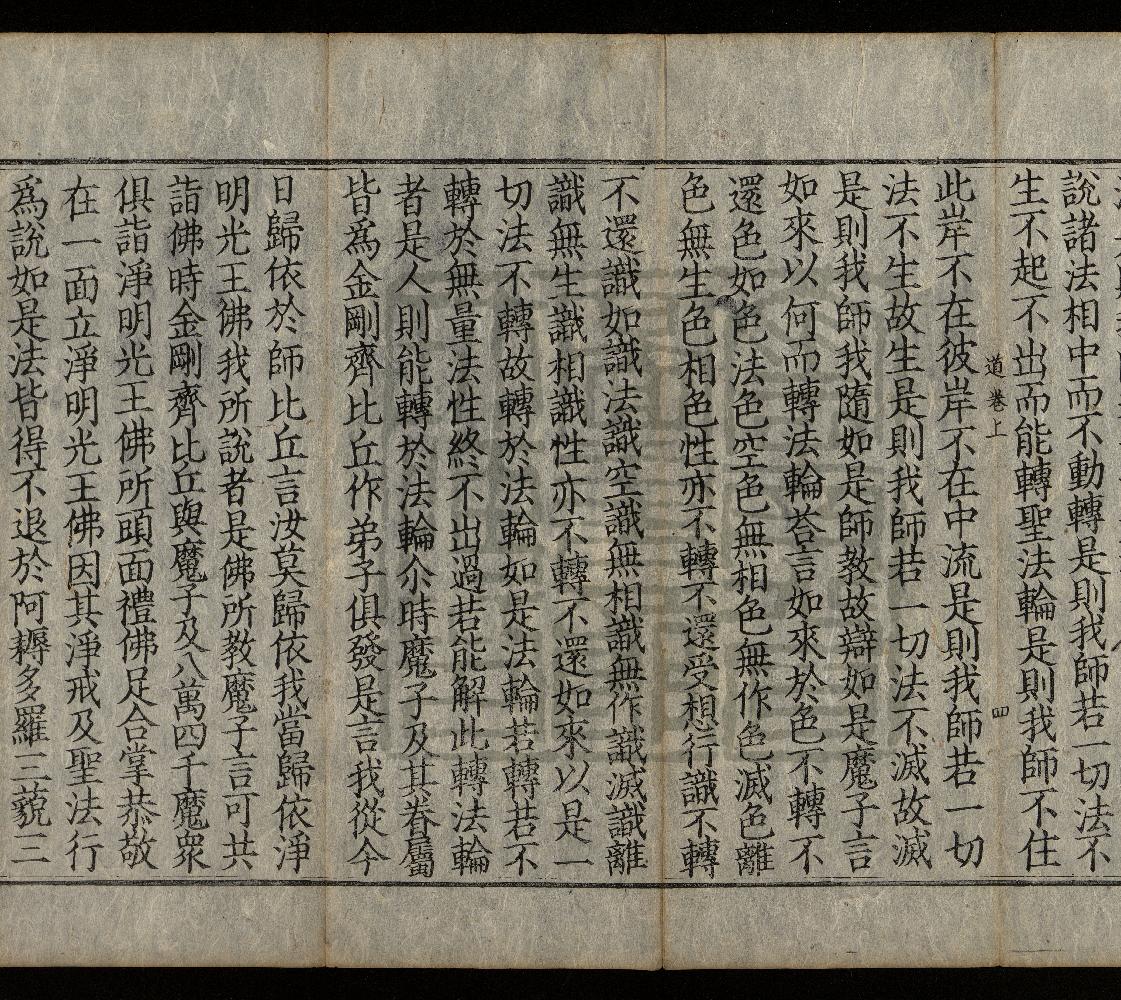 說諸法相中而不動轉是則我師若一切法不
生不起不出而能轉聖法輪是則我師不住
道卷上 四
此岸不在彼岸不在中流是則我師若一切
法不生故生是則我師若一切法不滅故滅
是則我師我隨如是師教故辯如是魔子言
如來以何而轉法輪荅言如來於色不轉不
還色如色法色空色無相色無作色滅色離
色無生色相色性亦不轉不還受想行識不轉
不還識如識法識空識無相識無作識滅識離
識無生識相識性亦不轉不還如來以是一
切法不轉故轉於法輪如是法輪若轉若不
轉於無量法性終不出過若能解此轉法輪
者是人則能轉於法輪尒時魔子及其眷屬
皆爲金剛齊比丘作弟子俱發是言我從今
日歸依於師比丘言汝莫歸依我當歸依淨
明光王佛我所說者是佛所教魔子言可共
詣佛時金剛齊比丘與魔子及八萬四千魔眾
俱詣淨明光王佛所頭面禮佛足合掌恭敬
在一面立淨明光王佛因其淨戒及聖法行
爲說如是法皆得不退於阿耨多羅三藐三